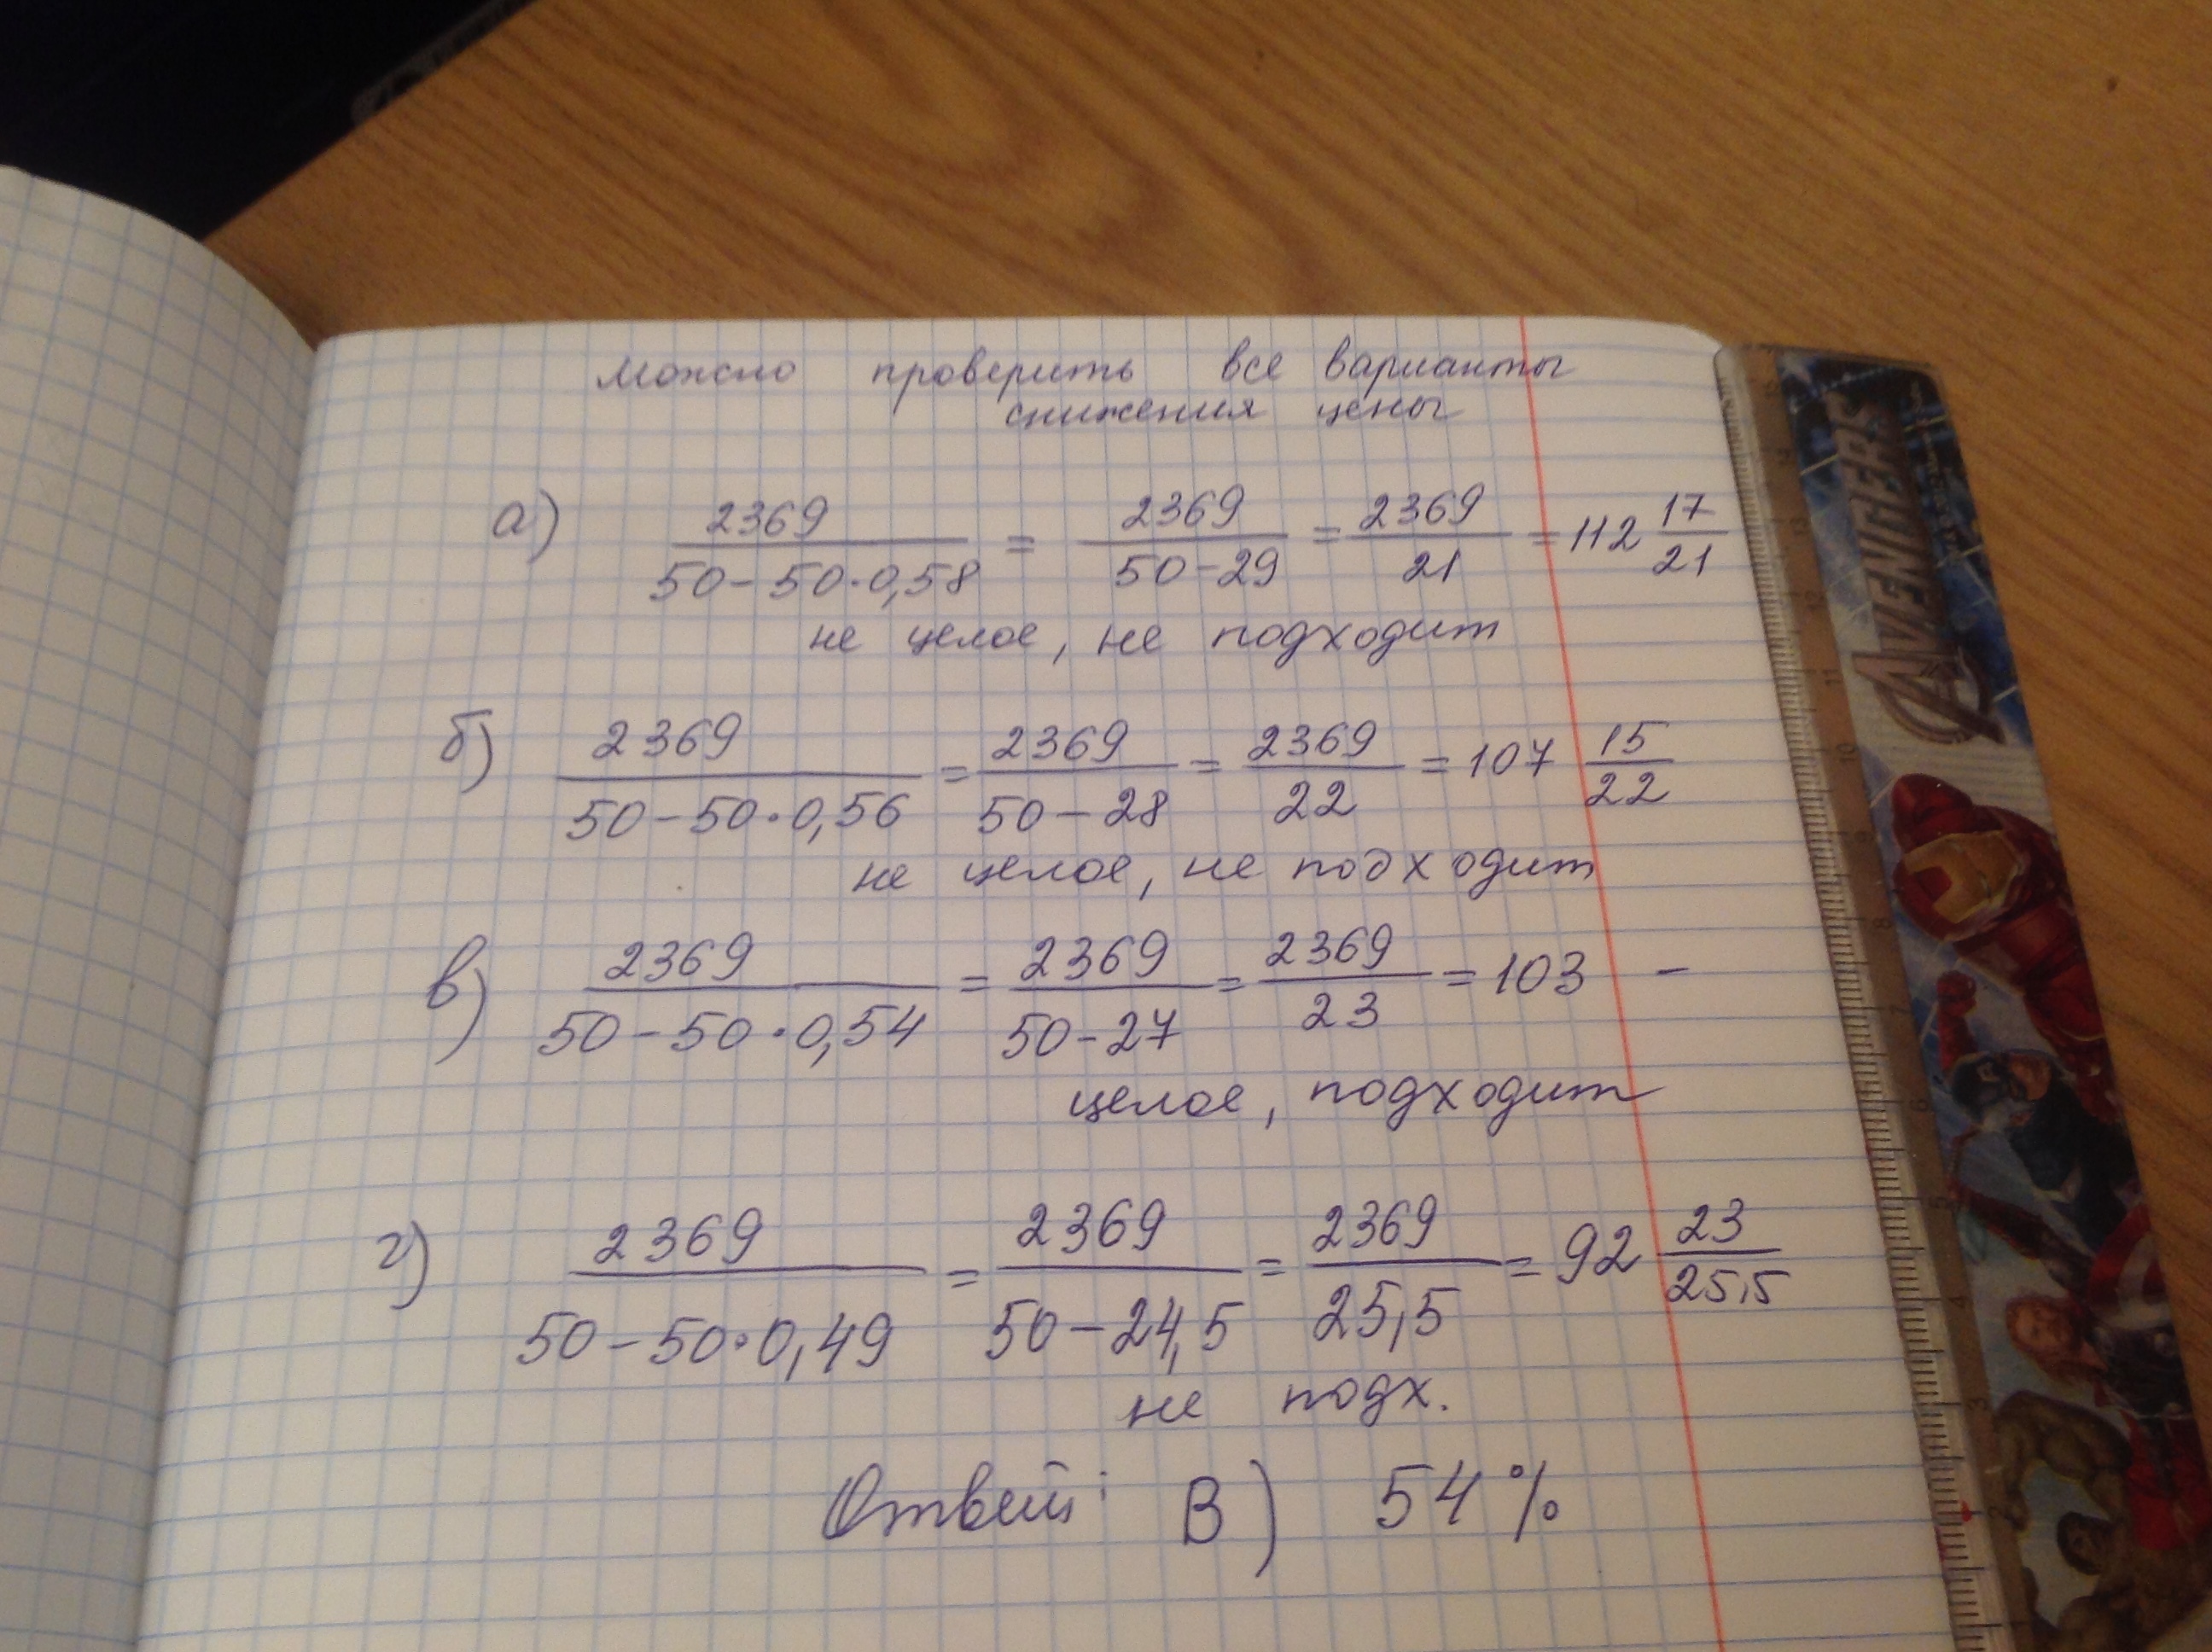 можно проверить все варианты
снижения цены
а) 2369 / 50-50·0,58 = 2369 / 50-29 = 2369 / 21 = 112 17/21
не целое, не подходит
б) 2369 / 50-50·0,56 = 2369 / 50-28 = 2369 / 22 = 107 15/22
не целое, не подходит
в) 2369 / 50-50·0,54 = 2369 / 50-27 = 2369 / 23 = 103 -
целое, подходит
г) 2369 / 50-50·0,49 = 2369 / 50-24,5 = 2369 / 25,5 = 92 23/25,5
не подх.
Ответ: В) 54%
AVENGERS